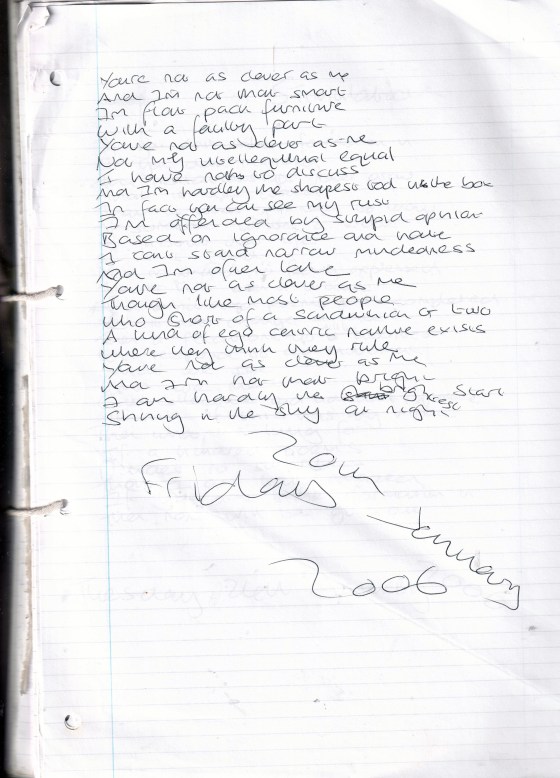 Youre not as clever as me
And Im not that smart
Im flat pack furniture
With a faulty part
Youre not as clever as me
Not my intellequential equal
I have not to discuss
And Im hardley the shapest tool in the box
In fact you can see my rust
I'm offended by stupid opinion
Based on ignorance and hate
I cant stand narrow mindedness
And Im often late
Youre not as clever as me
Though like most people
Who short of a sandwich or two
A kind of ego centric native exists
where they think they rule
Youre not as clever as me
And I'm not that bright
I am hardly the brightest Start
Shining in the sky at night
20th
Friday
January
2006